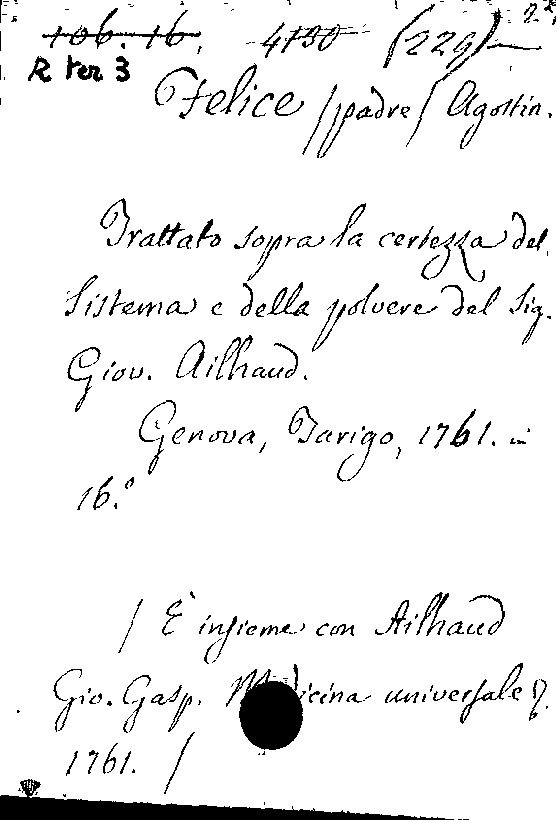 106.16. 4130 (229)
R ter 3
Felice /padre/ Agostin.
Trattato sopra la certezza del
Sistema e della polvere del Sig.
Giov. Ailhaud.
Genova, Tarigo, 1761. in
16.°
/ È insieme con Ailhaud
Gio. Gasp. Medicina universale
1761. /